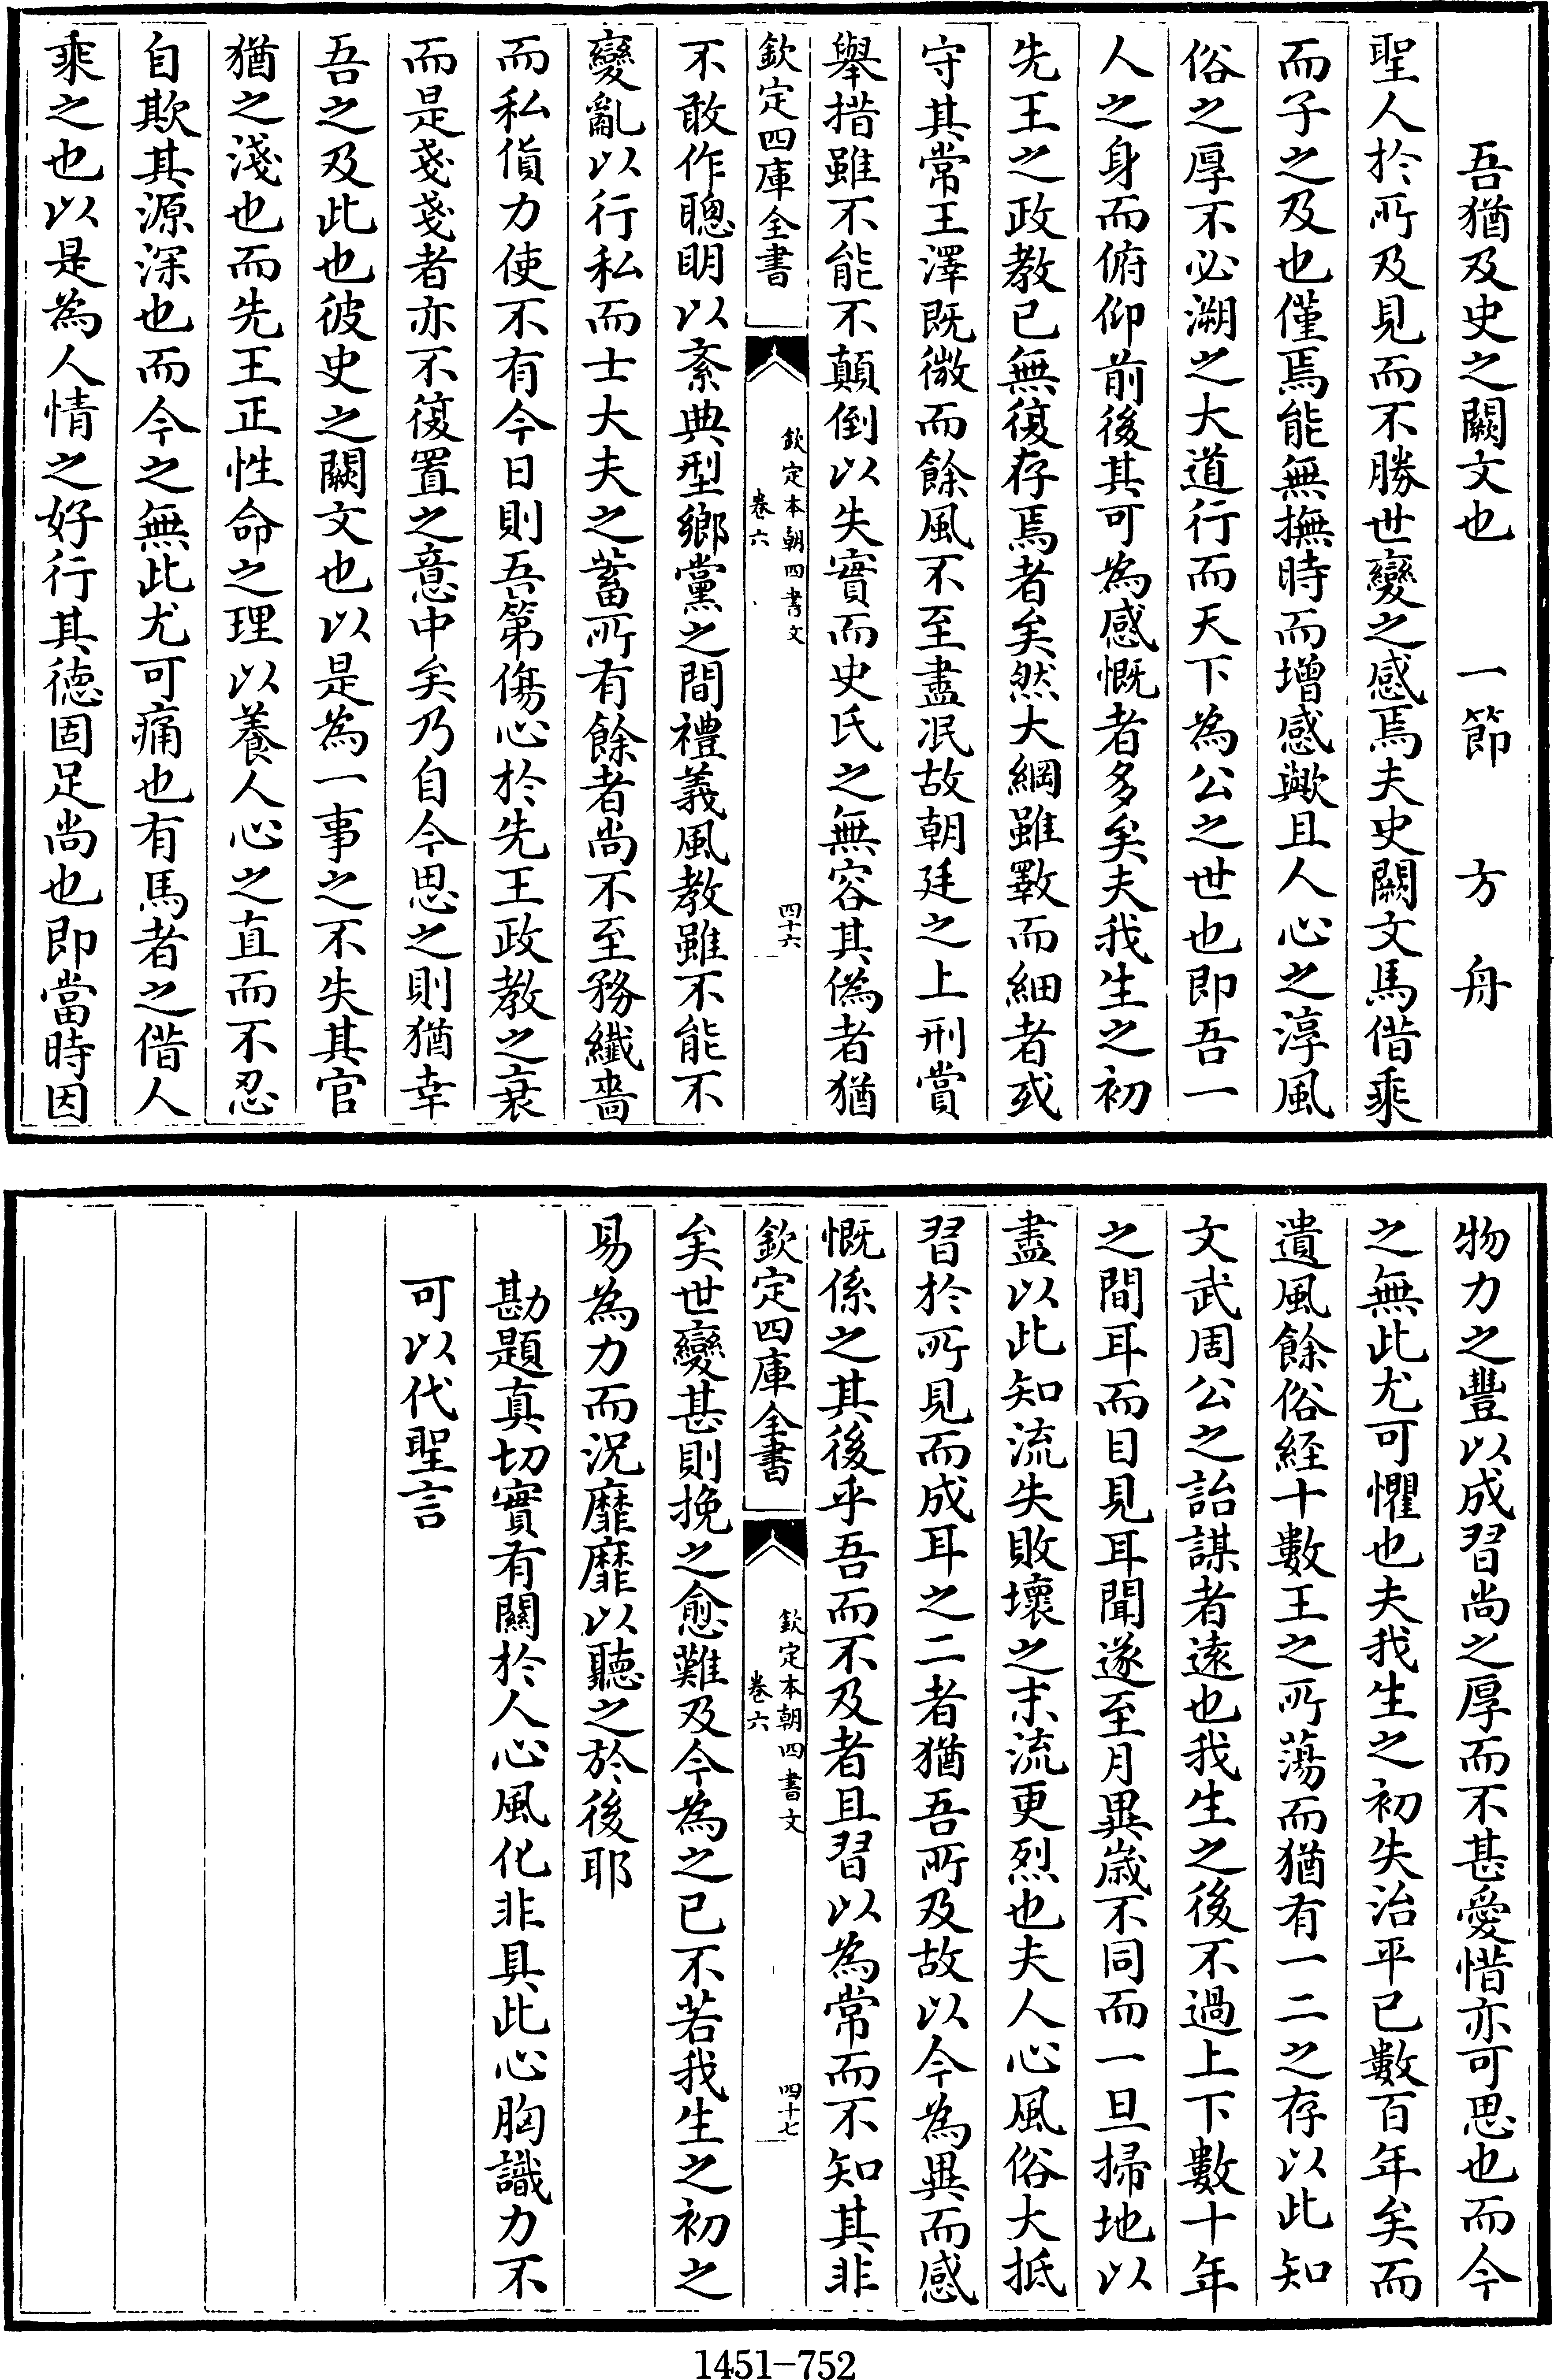 吾猶及史之闕文也　一節　方　舟
聖人於所及見而不勝世變之感焉夫史闕文馬借乘
而子之及也僅焉能無撫時而增感歟且人心之淳風
俗之厚不必溯之大道行而天下為公之世也即吾一
人之身而俯仰前後其可為感慨者多矣夫我生之初
先王之政教已無復存焉者矣然大綱雖斁而細者或
守其常王澤既微而餘風不至盡泯故朝廷之上刑賞
舉措雖不能不顛倒以失實而史氏之無容其偽者猶
欽定四庫全書
欽定本朝四書文
卷六
四十六
不敢作聰明以紊典型鄉黨之間禮義風教雖不能不
變亂以行私而士大夫之蓄所有餘者尚不至務纖嗇
而私貨力使不有今日則吾第傷心於先王政教之衰
而是戔戔者亦不復置之意中矣乃自今思之則猶幸
吾之及此也彼史之闕文也以是為一事之不失其官
猶之淺也而先王正性命之理以養人心之直而不忍
自欺其源深也而今之無此尤可痛也有馬者之借人
乘之也以是為人情之好行其德固足尚也即當時因
物力之豐以成習尚之厚而不甚愛惜亦可思也而今
之無此尤可懼也夫我生之初失治平已數百年矣而
遺風餘俗經十數王之所蕩而猶有一二之存以此知
文武周公之詒謀者遠也我生之後不過上下數十年
之間耳而目見耳聞遂至月異歲不同而一旦掃地以
盡以此知流失敗壞之末流更烈也夫人心風俗大抵
習於所見而成耳之二者猶吾所及故以今為異而感
慨係之其後乎吾而不及者且習以為常而不知其非
欽定四庫全書
欽定本朝四書文
卷六
四十七
矣世變甚則挽之愈難及今為之已不若我生之初之
易為力而況靡靡以聽之於後耶
勘題真切實有關於人心風化非具此心胸識力不
可以代聖言
1451-752